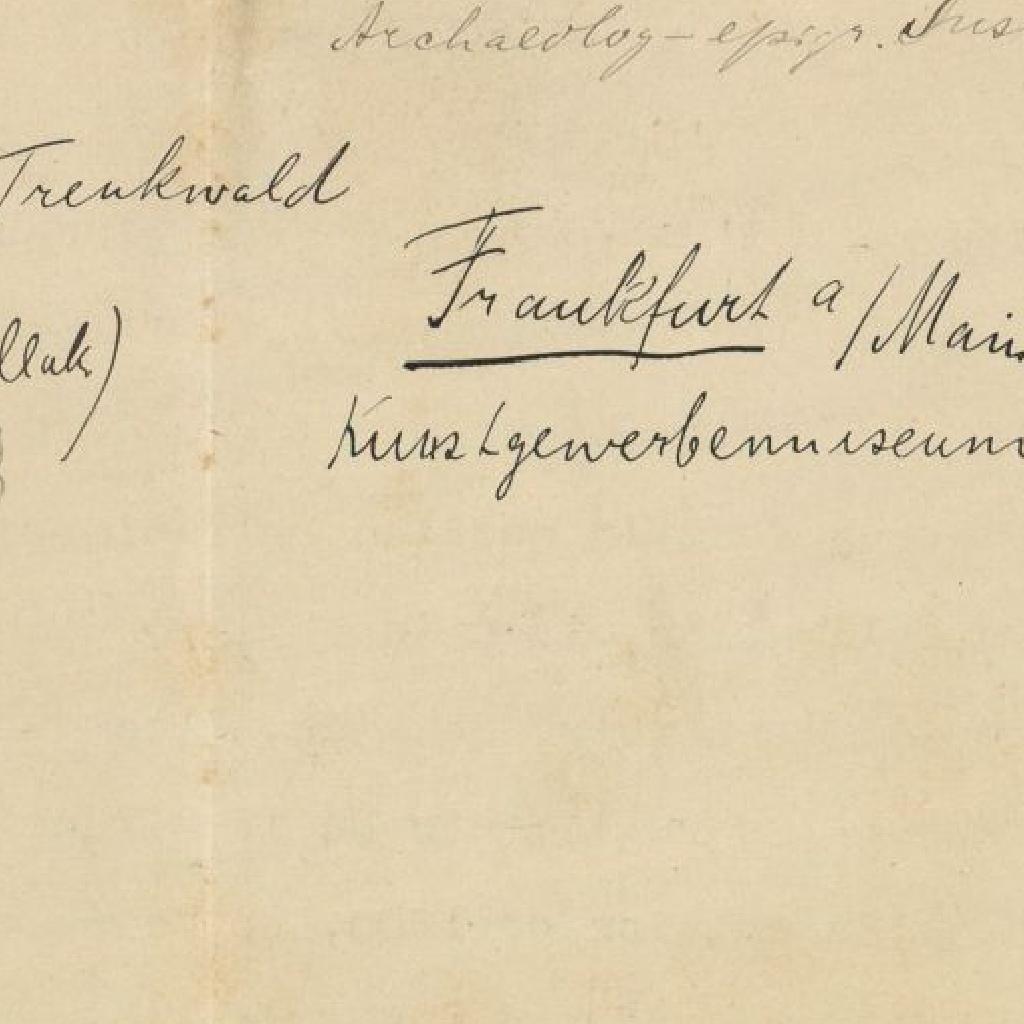 Archaeolog-epigr. Ins
Trenkwald
Frankfurt a/Main
llak)
Kunstgewerbemuseum